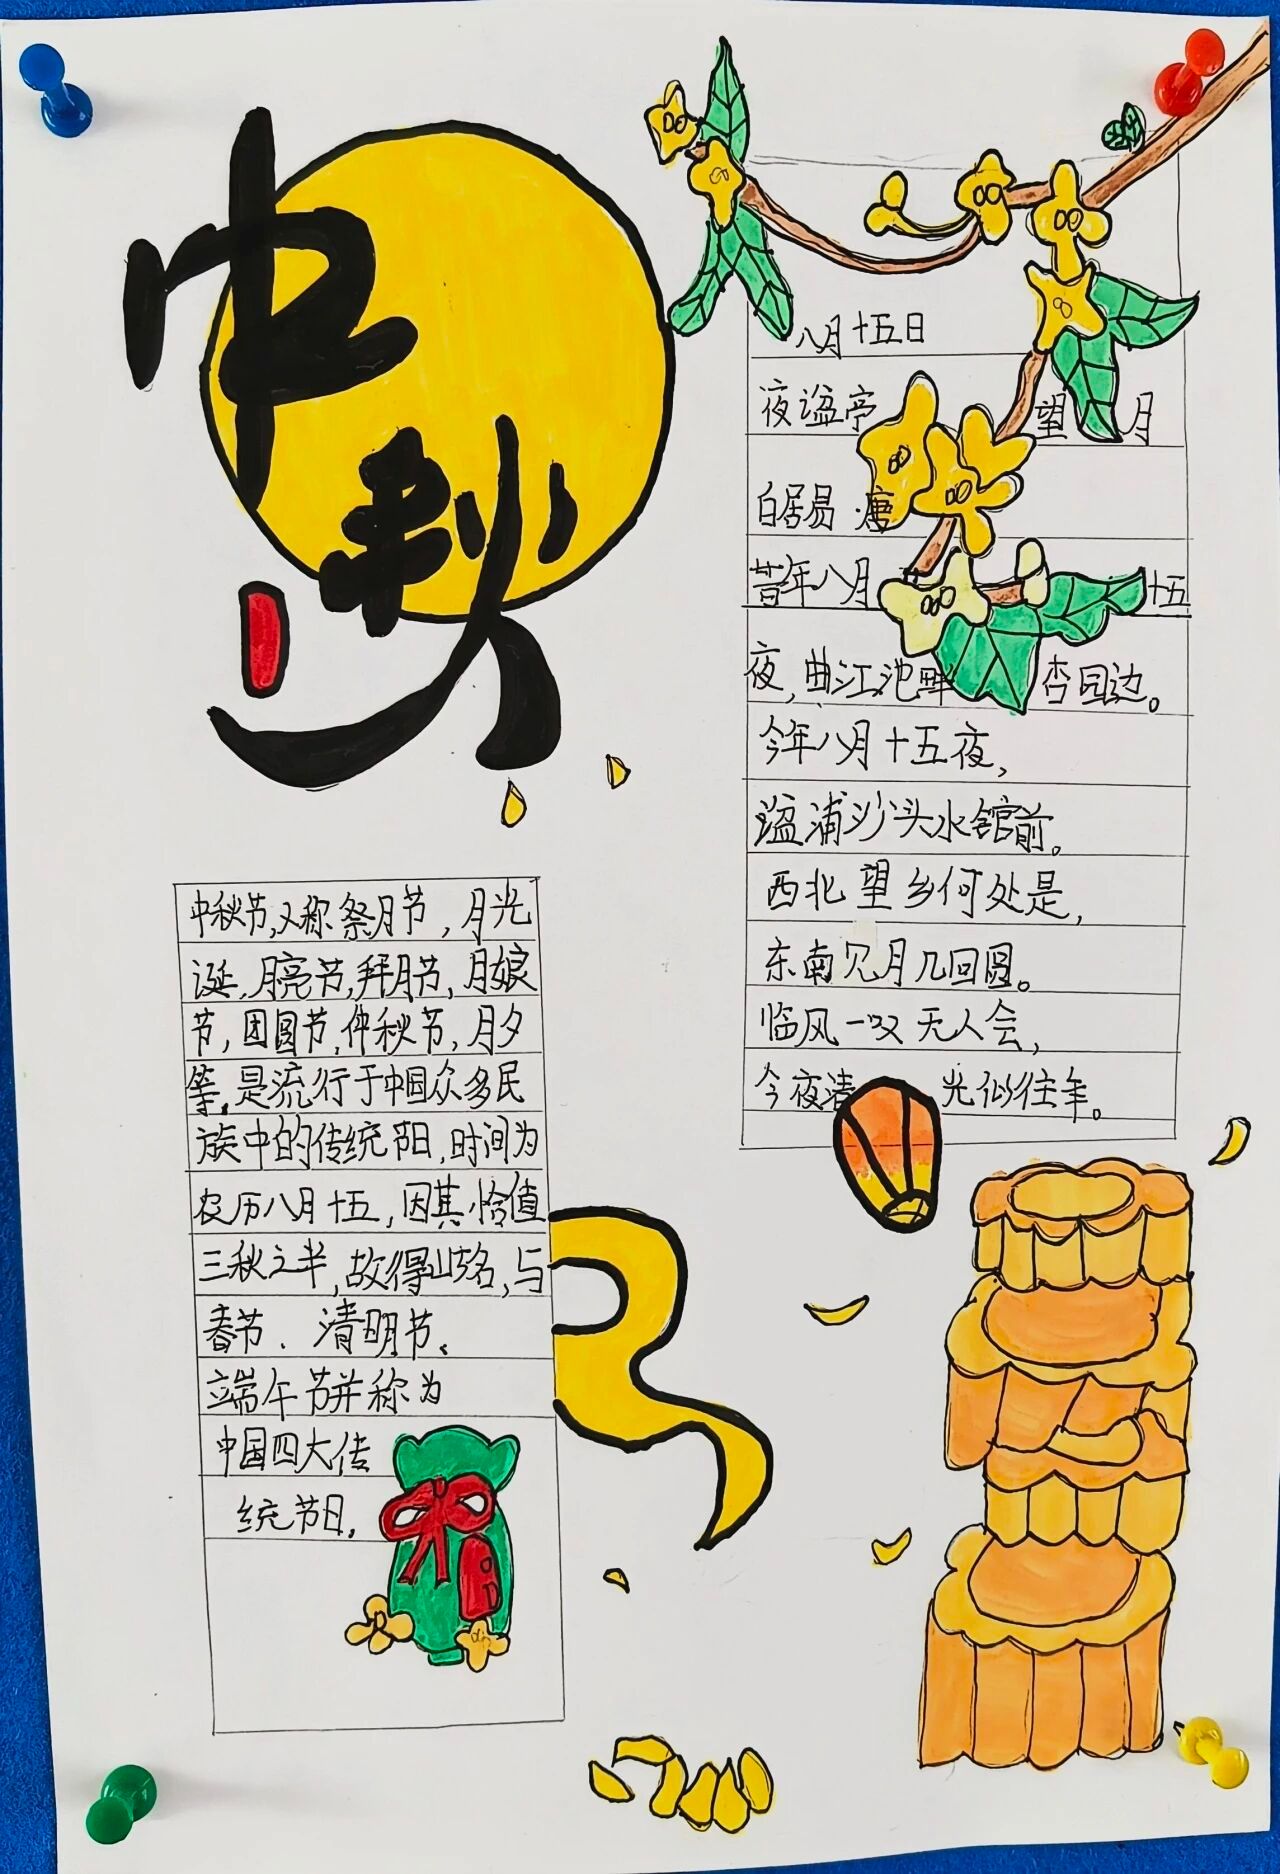 中秋
八月十五日
夜湓亭望月
白居易·唐
昔年八月十五
夜,曲江池畔杏园边。
今年八月十五夜,
湓浦沙头水馆前。
西北望乡何处是,
东南见月几回圆。
临风一叹无人会,
今夜清光似往年。
中秋节,又称祭月节,月光
诞,月亮节,拜月节,月娘
节,团圆节,仲秋节,月夕
等。是流行于中国众多民
族中的传统节阳,时间为
农历八月十五,因其恰值
三秋之半,故得此名,与
春节、清明节、
端午节并称为
中国四大传
统节日.